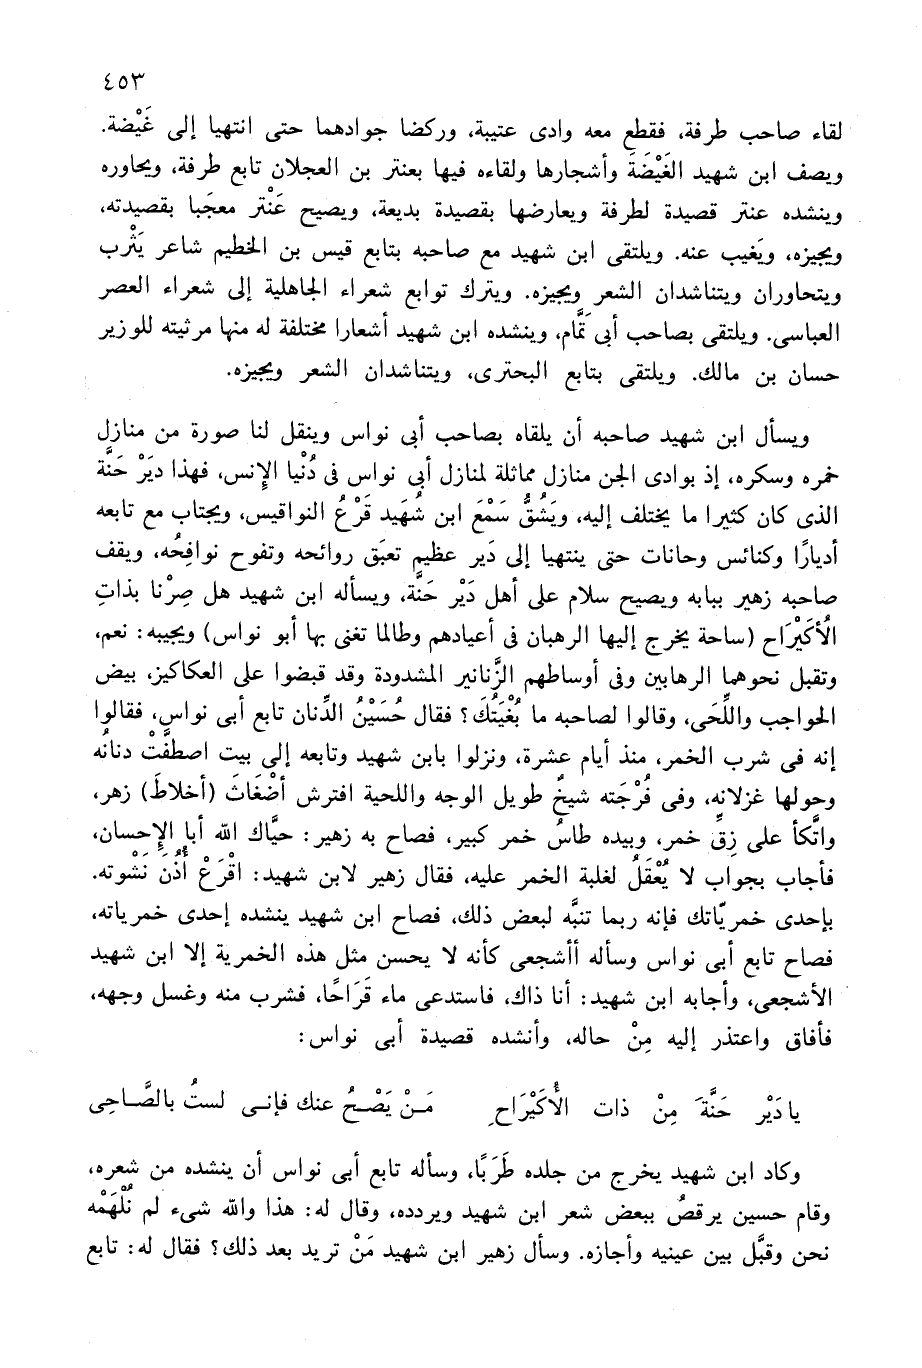 ٤٥٣
لقاء صاحب طرفة، فقطع معه وادى عتيبة، وركضا جوادهما حتى انتهيا إلى غَيْضة.
ويصف ابن شهيد الغَيْضَة وأشجارها ولقاءه فيها بعنتر بن العجلان تابع طرفة، ويحاوره
وينشده عنتر قصيدة لطرفة ويعارضها بقصيدة بديعة، ويصيح عَنْتر معجَبا بقصيدته،
ويجيزه، ويَغيب عنه. ويلتقى ابن شهيد مع صاحبه بتابع قيس بن الخطيم شاعر يَثْرب
ويتحاوران ويتناشدان الشعر ويجيزه. ويترك توابع شعراء الجاهلية إلى شعراء العصر
العباسى. ويلتقى بصاحب أبى تمَّام، وينشده ابن شهيد أشعارا مختلفة له منها مرثيته للوزير
حسان بن مالك. ويلتقى بتابع البحترى، ويتناشدان الشعر ويجيزه.
ويسأل ابن شهيد صاحبه أن يلقاه بصاحب أبى نواس وينقل لنا صورة من منازل
خمره وسكره، إذ بوادى الجن منازل مماثلة لمنازل أبى نواس فى دُنْيا الإنس، فهذا ديَرْ حَنَّة
الذى كان كثيرا ما يختلف إليه، ويَشُقُّ سَمْعَ ابن شُهَيد قَرْعُ النواقيس، ويجتاب مع تابعه
أديارًا وكنائس وحانات حتى ينتهيا إلى دَير عظيم تعبَق روائحه وتفوح نوافِحُه، ويقف
صاحبه زهير ببابه ويصيح سلام على أهل دَيْر حَنَّة، ويسأله ابن شهيد هل صِرْنا بذاتِ
الأُكَيْرَاح (ساحة يخرج إليها الرهبان فى أعيادهم وطالما تغنى بها أبو نواس) ويجيبه: نعم،
وتقبل نحوهما الرهابين وفى أوساطهم الزَّنانير المشدودة وقد قبضوا على العكاكيز، بيض
الحواجب واللِّحَى، وقالوا لصاحبه ما بُغْيَتُكَ؟ فقال حُسَيْنُ الدِّنان تابع أبى نواس، فقالوا
إنه فى شرب الخمر، منذ أيام عشرة، ونزلوا بابن شهيد وتابعه إلى بيت اصطفَّتْ دنانُه
وحولها غزلانه، وفى فُرْجَته شيخٌ طويل الوجه واللحية افترش أضْغَاثَ (أخلاطَ) زهر،
واتَّكأ على زِقِّ خمر، وبيده طاسُ خمر كبير، فصاح به زهير: حيَّاك الله أبا الإحسان،
فأجاب بجواب لا يُعْقَلُ لغلبة الخمر عليه، فقال زهير لابن شهيد: اقْرَعْ أُذُنَ نَشْوته.
بإحدى خمريّاتك فإنه ربما تنبَّه لبعض ذلك، فصاح ابن شهيد ينشده إحدى خمرياته،
فصاح تابع أبى نواس وسأله أأشجعى كأنه لا يحسن مثل هذه الخمرية إلا ابن شهيد
الأشجعى، وأجابه ابن شهيد: أنا ذاك، فاستدعى ماء قَرَاحًا، فشرب منه وغسل وجهه،
فأفاق واعتذر إليه مِنْ حاله، وأنشده قصيدة أبى نواس:
يا دَيْر حَنَّةَ مِنْ ذات الأُكَيْرَاحِ    مَـنْ يَصْـحُ عنك فإنـى لستُ بالصَّـاحِى
وكاد ابن شهيد يخرج من جلده طَرَبًا، وسأله تابع أبى نواس أن ينشده من شعره،
وقام حسين يرقصُ ببعض شعر ابن شهيد ويردده، وقال له: هذا والله شىء لم نُلْهَمْه
نحن وقبَّل بين عينيه وأجازه. وسأل زهير ابن شهيد مَنْ تريد بعد ذلك؟ فقال له: تابع